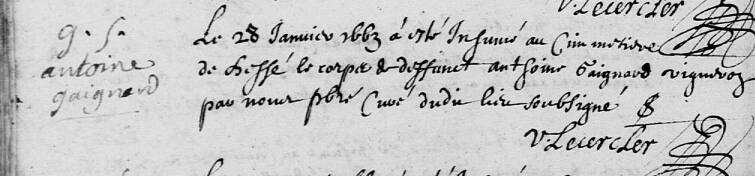 V. Lecercler
g. s.
antoine
gaignard
Le 28 Janvier 1663 a esté Inhumé au Cimmetiere
de Hessé le corps de deffunct anthoine Gaignard vigneron
par nous pbre Curé dudit lieu soubsigné
V. Lecercler